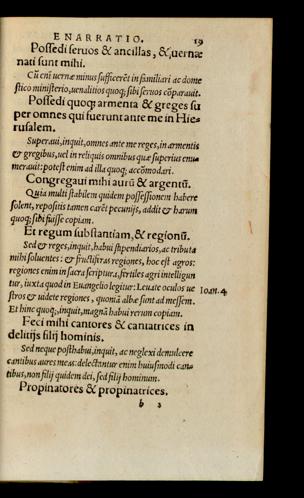 ENARRATIO. 19
Possedi seruos & ancillas, & uernæ
nati sunt mihi.
Cũ em̃ uernæ minus sufficerẽt in familiari ac dome
stico ministerio, uenalitios quoq; sibi seruos cõparauit.
Possedi quoq; armenta & greges su
per omnes qui fuerunt ante me in Hie-
rusalem.
Superaui, inquit, omnes ante me reges, in armentis
& gregibus, uel in reliquis omnibus quæ superius enu-
merauit: potest enim ad illa quoq; accõmodari.
Congregaui mihi aurũ & argentũ.
Quia multi stabilem quidem possessionem habere
solent, repositis tamen carẽt pecunijs, addit & harum
quoq; sibi fuisse copiam.
Et regum substantiam, & regionũ.
Sed & reges, inquit, habui stipendiarios, ac tributa
mihi soluentes: & fructiferas regiones, hoc est agros:
regiones enim in sacra scriptura, fertiles agri intelligun
tur, iuxta quod in Euangelio legitur: Leuate oculos ue Ioan. 4.
stros & uidete regiones, quoniã albæ sunt ad messem.
Et hinc quoq;, inquit, magnã habui rerum copiam.
Feci mihi cantores & cantatrices in
delitijs filij hominis.
Sed neque posthabui, inquit, ac neglexi demulcere
cantibus aures meas: delectantur enim huiusmodi can-
tibus, non filij quidem dei, sed filij hominum.
Propinatores & propinatrices.
b 3